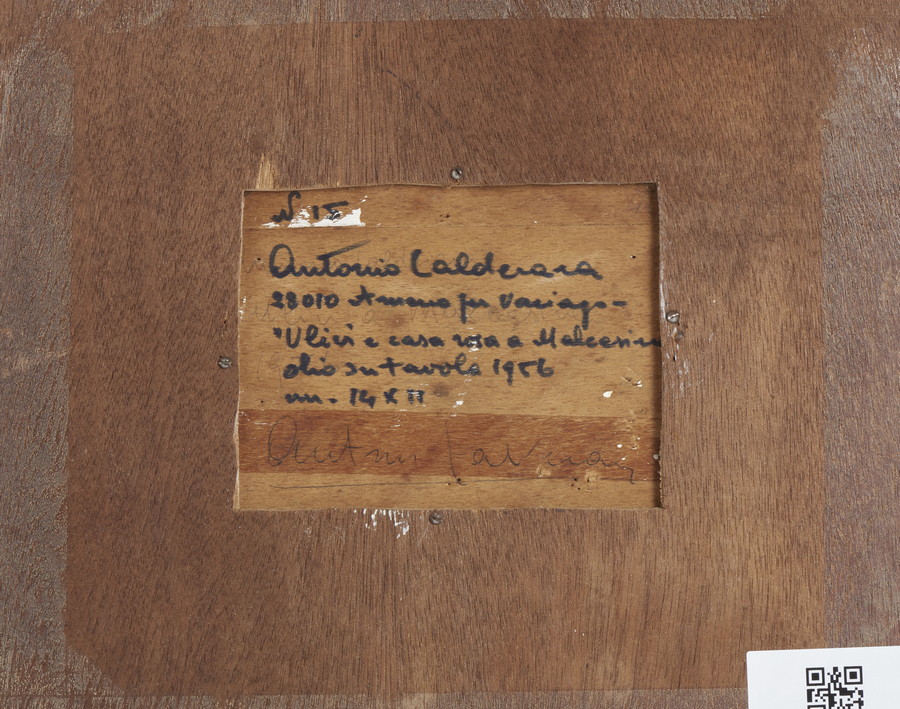 N 15
Antonio Calderara
28010 Ameno per Vacciago -
"Ulivi e casa rosa a Malcesin
olio su tavola 1956
m. 14 x 11
Antonio Calderara